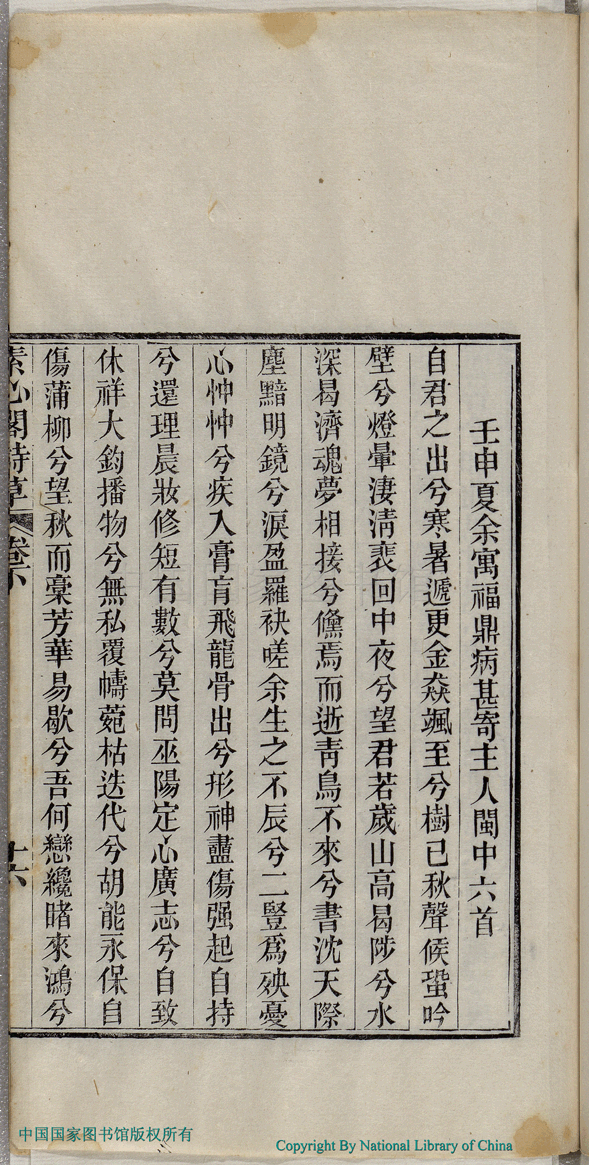 壬申夏余寓福鼎病甚寄主人閩中六首
自君之出兮寒暑遞更金猋颯至兮樹已秋聲候蛩吟
壁兮燈暈淒淸裵回中夜兮望君若歲山高曷陟兮水
深曷濟魂夢相接兮儵焉而逝靑鳥不來兮書沈天際
塵黯明鏡兮淚盈羅袂嗟余生之不辰兮二豎爲殃憂
心忡忡兮疾入膏肓飛龍骨出兮形神衋傷强起自持
兮還理晨妝修短有數兮莫問巫陽定心廣志兮自致
休祥大鈞播物兮無私覆幬菀枯迭代兮胡能永保自
傷蒲柳兮望秋而槀芳華易歇兮吾何戀纔睹來鴻兮
素心閣詩草 卷下 十六
中国国家图书馆版权所有
Copyright By National Library of China